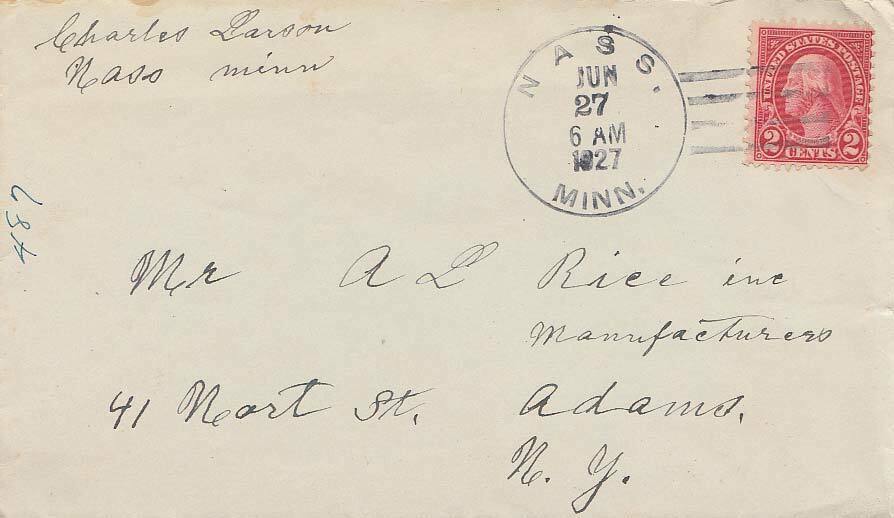 Charles Larson
Nass minn
NASS.
JUN
27
6 AM
1927
MINN.
UNITED STATES POSTAGE
2 CENTS 2
Mr A L Rice inc
Manufacturers
41 Nort St. Adams.
N. Y.